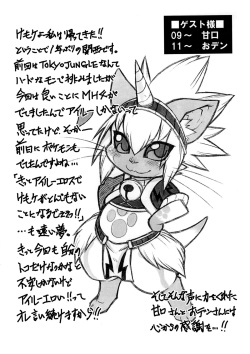 ■ゲスト様■
09～　甘口
11～　おデン
けモケよー私は帰ってきた!!
ということで1年ぶりの関西です。
前回はTOKYO JUNGLEなんて
ハードなモンで挑みましたが
今回は良いことにMH4が
でましたんでアイルーしかないって
思ってたけど、そのー
前日にポケモンも
でましたですよね…
「きっとアイルーエロスで
けモケがとんでもない
ことになるでぇ!!」
…も遠い夢。
きっと今回も自分の
アイルーエロい!!って
オレ言い続けますから!!
そしてそんな声に力をくれた
甘口さんとおデンさんには
心からの感謝を…!!